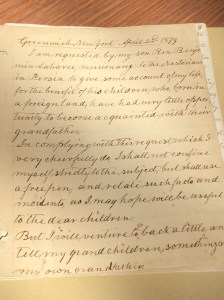 Greenwich, New York April 22d 1879
I am requested by my son Rev Benja-
min Labaree, missionary to the Nestorians
in Persia to give some account of my life,
for the benefit of his children, who born in
a foreign land, have had very little oppor-
tunity to become acquainted with their
grandfather.
In complying with this request which I
very cheerfully do, I shall not confine
myself strictly to the subject, but shall use
a free pen, and relate such facts and
incidents, as I may hope, will be useful
to the dear children.
But I will venture to back a little and
tell my grand children, something of
my own grandfather